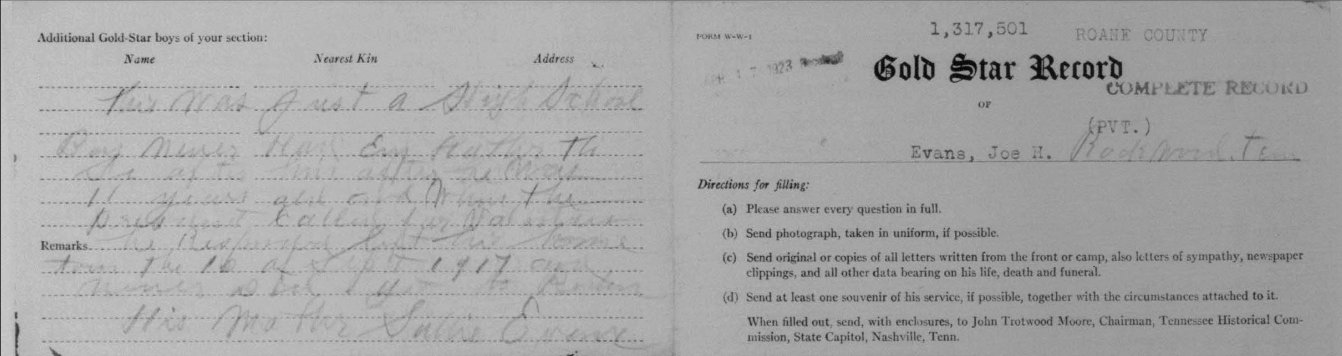 Additional Gold-Star boys of your section:
Name Nearest Kin Address
This was Just a High School
Boy never Had Eny Father to
after he was
11 years and When the
President Called for
Remarks he Responed left his home
town the 16 of Sept 1917 and
never
His Mother Sallie Evans
FORM W-W-1
1,317,501 ROANE COUNTY
17 1923
Gold Star Record
COMPLETE RECORD
OF
(PVT.)
Evans, Joe H. Rockwood, Tenn
Directions for filling:
(a) Please answer every question in full.
(b) Send photograph, taken in uniform, if possible.
(c) Send original or copies of all letters written from the front or camp, also letters of sympathy, newspaper
clippings, and all other data bearing on his life, death and funeral.
(d) Send at least one souvenir of his service, if possible, together with the circumstances attached to it.
When filled out, send, with enclosures, to John Trotwood Moore, Chairman, Tennessee Historical Com-
mission, State Capitol, Nashville, Tenn.